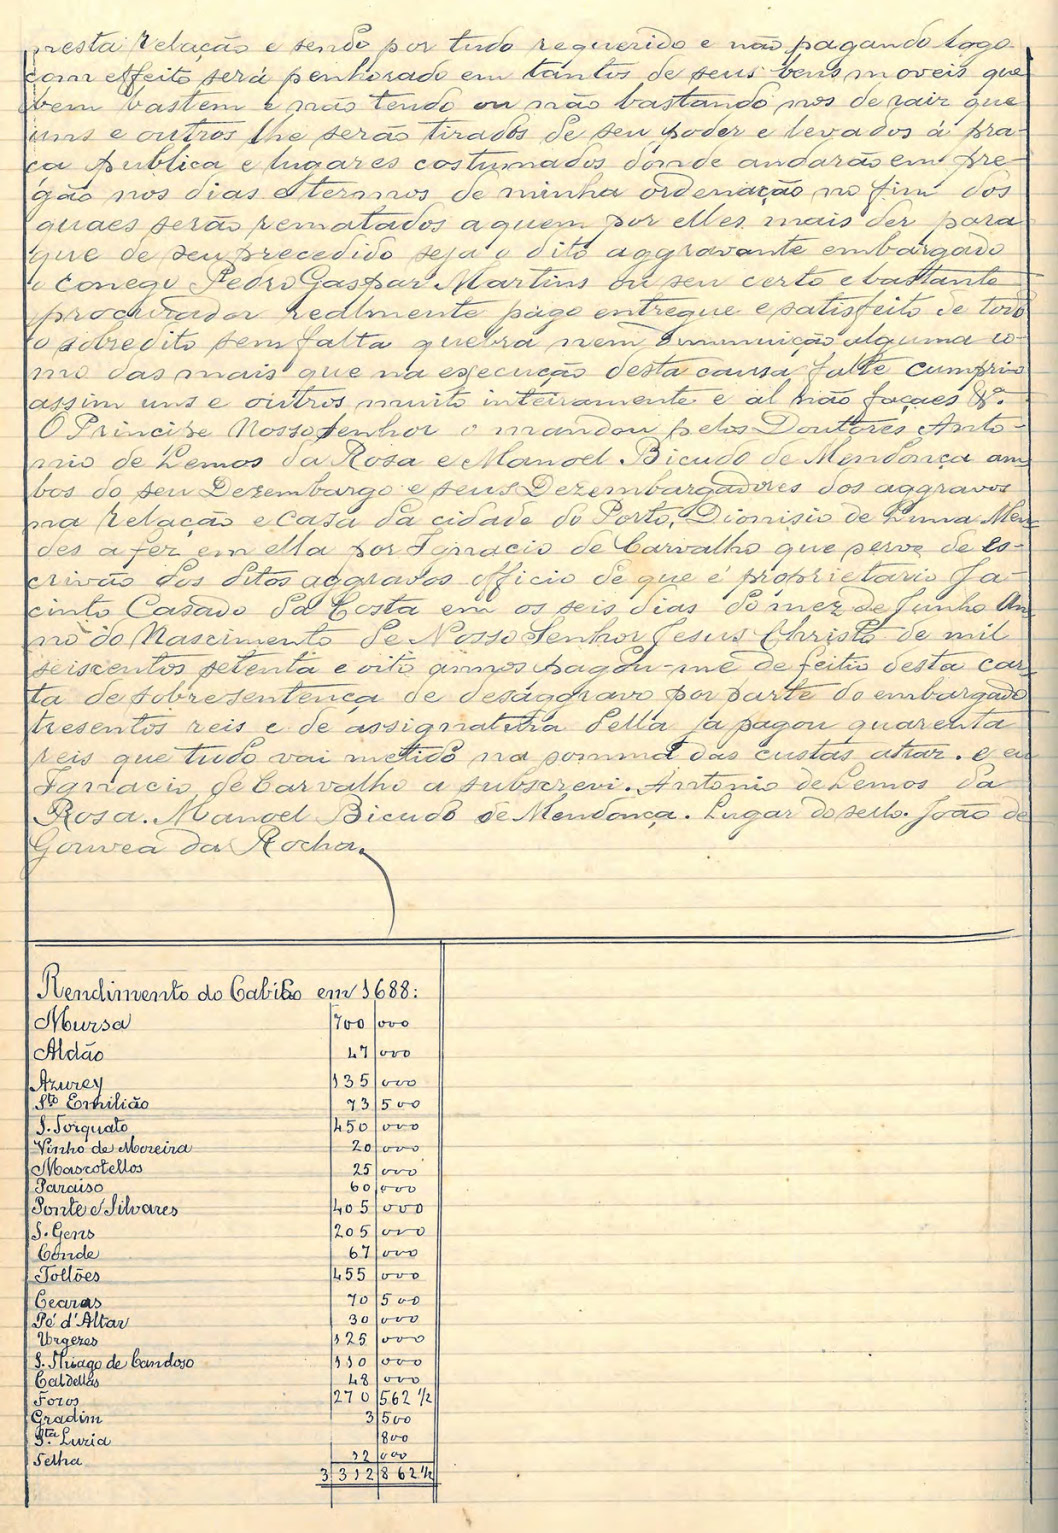 nesta relação e sendo por tudo requerido e não pagando logo
com effeito será penhorado em tantos de seus bens moveis que
bem bastem e não tendo ou não bastando nos de raiz que
uns e outros lhe serão tirados de seu poder e levados á pra-
ça publica e lugares costumados donde andarão em pre-
gão nos dias e termos de minha ordenação no fim dos
quaes serão rematados a quem por elles mais der para
que de seu precedido seja o dito aggravante embargado
o conego Pedro Gaspar Martins ou seu certo e bastante
procurador realmente pago entregue e satisfeito de todo
o sobredito sem falta quebra nem diminuição alguma co-
mo das mais que na execução desta causa falte cumprio
assim uns e outros muito inteiramente e al não façaes &ª.
O Principe Nosso Senhor o mandou pelos Doutores Anto-
nio de Lemos da Rosa e Manoel Bicudo de Mendonça am-
bos do seu Dezembargo e seus Dezembargadores dos aggravos
na relação e casa da cidade do Porto, Dionisio de Lima Men-
des a fez em ella por Ignacio de Carvalho que serve de es-
crivão dos ditos aggravos officio de que é proprietario Ja-
cinto Casado da Costa em os seis dias do mez de Junho An-
no do Nascimento de Nosso Senhor Jesus Christo de mil
seiscentos setenta e oito annos pagou-me de feitio desta car-
ta de sobresentença de desaggravo por parte do embargado
tresentos reis e de assignatura della já pagou quarenta
reis que tudo vai metido na somma das custas atraz. e eu
Ignacio de Carvalho a subscrevi. Antonio de Lemos da
Rosa. Manoel Bicudo de Mendonça. Lugar do sello. João de
Gouvea da Rocha.
Rendimento do Cabido em 1688:
Mursa 700 000
Aldão 47 000
Azurey 135 000
Sto Emilião 73 500
S. Torquato 450 000
Vinho de Moreira 20 000
Mascotellos 25 000
Paraiso 60 000
Ponte e Silvares 405 000
S. Gens 205 000
Conde 67 000
Tollões 455 000
Cearas 70 500
Pé d'Altar 30 000
Urgezes 125 000
S. Thiago de Candoso 110 000
Caldellas 48 000
Foros 270 562 ½
Gradim 3 500
Sta Luzia 800
Selha 12 000
3 312 862 ½